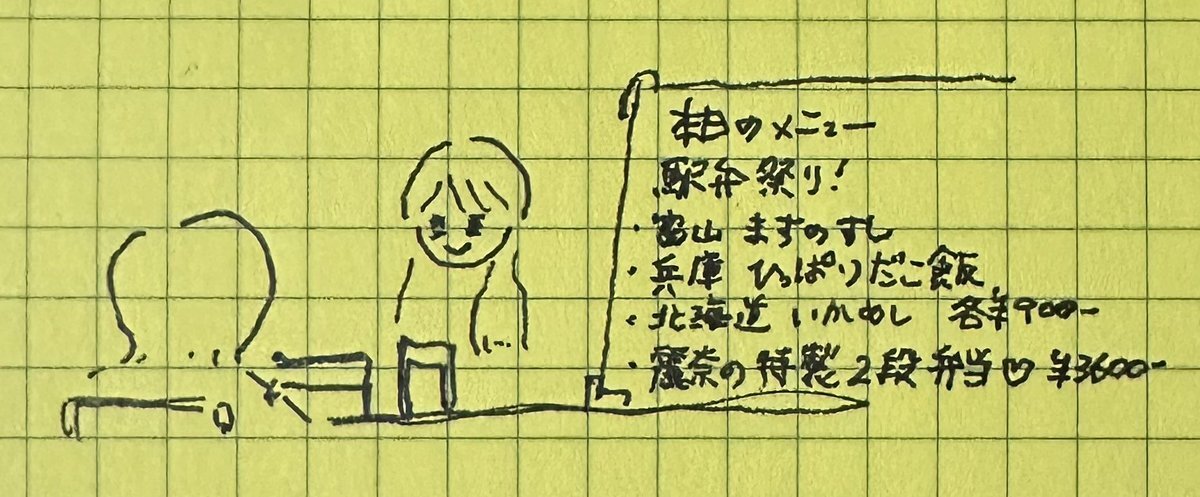 本日のメニュー
駅弁祭り!
・富山 ますのすし
・兵庫 ひっぱりだこ飯
・北海道 いかめし 各¥900-
・麗奈の特製2段弁当♡ ¥3600-